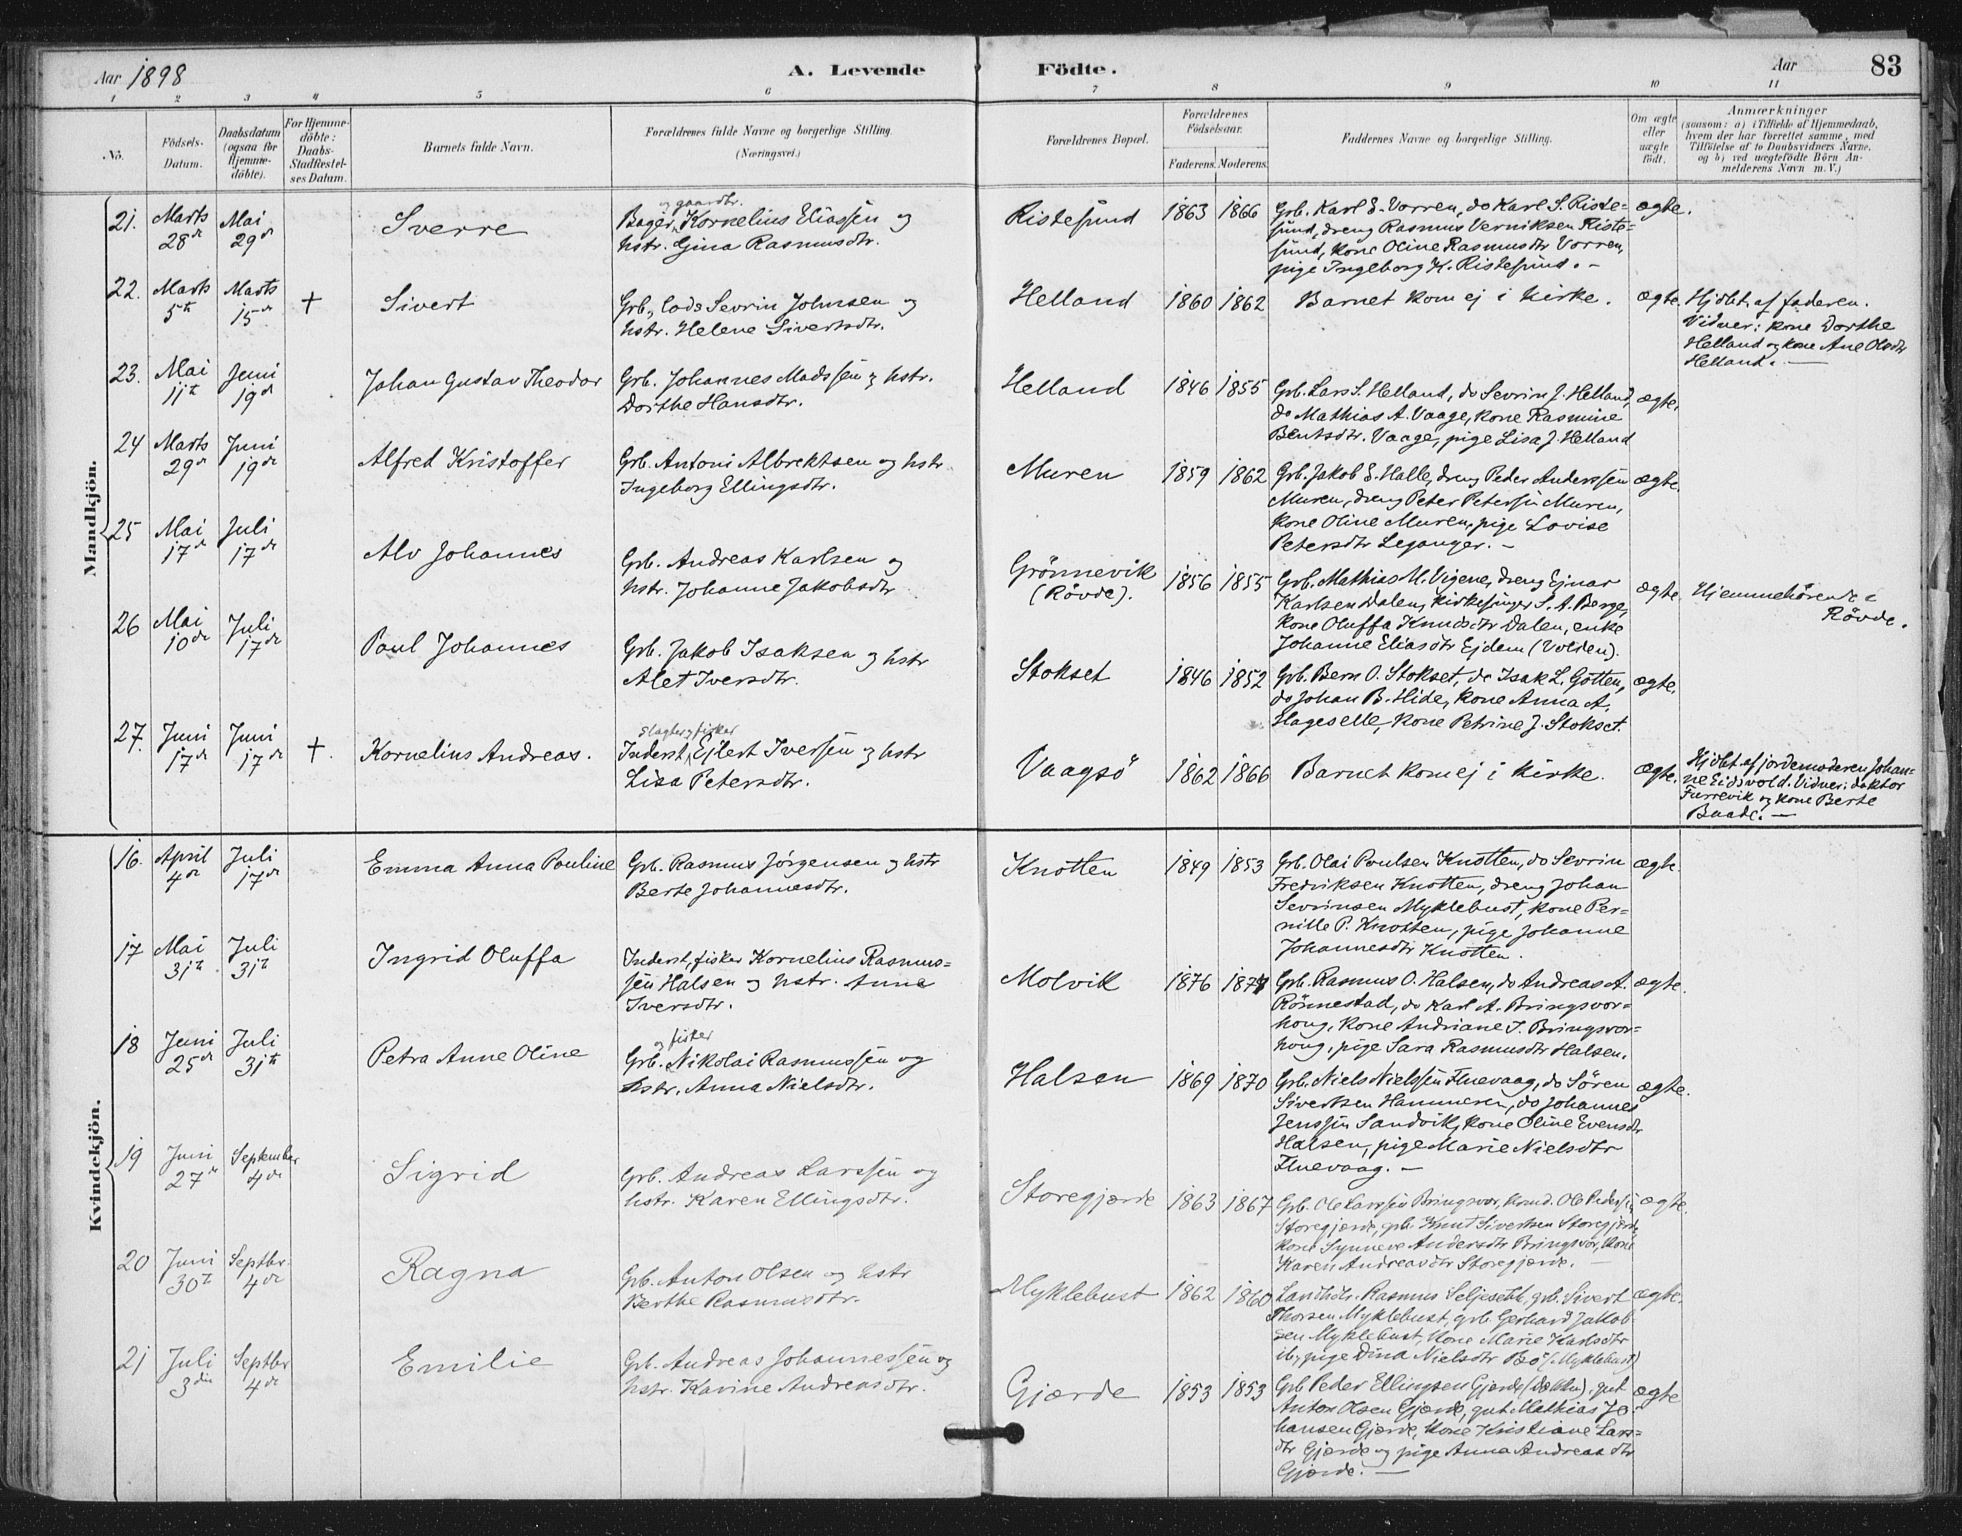 Aar 1898
A. Levende Födte.
Aar 83
1 2 3 4 5 6 7 8 9 10 11
No.
Födsels-Datum.
Daabsdatum (ogsaa for Hjemme-döbte).
For Hjemme-döbte: Daabs-Stadfæstel-ses Datum.
Barnets fulde Navn.
Forældrenes fulde Navne og borgerlige Stilling.
(Næringsvei.)
Forældrenes Bopæl.
Forældrenes Födselsaar.
Faderens. Moderens.
Faddernes Navne og borgerlige Stilling.
Om ægte eller uægte födt.
Anmærkninger
(saasom: a) i Tilfælde af Hjemmedaab, hvem der har forrettet samme, med Tilföielse af to Daabsvidners Navne, og b) ved uægtefödte Börn An-melderens Navn m. V.)
Mandkjön.
21. Marts 28de Mai 29de Sverre
Bager og gaardbr. Kornelius Eliassen og
hstr. Gina Rasmusdtr.
Ristesund 1863 1866
Grb. Karl E. Vorren, do Karl S. Riste=
sund, dreng Rasmus Verniksen Riste=
sund, kone Oline Rasmusdtr Vorren,
pige Ingeborg K. Ristesund. -
ægte.
22. Marts 5te Marts 15de + Sivert
Grb., lods Sevrin Johnsen og
hstr. Helene Sivertsdtr.
Helland 1860 1862
Barnet kom ej i kirke.
ægte.
Hjdbt. af faderen.
Vidner: kone Dorthe
Helland og kone Ane Olsdtr
Helland. -
23. Mai 11te Juni 19de Johan Gustav Theodor
Grb. Johannes Madssen og hstr.
Dorthe Hansdtr.
Helland 1846 1855
Grb. Lars S. Helland, do Sevrin J. Helland,
do Mathias A. Vaage, kone Rasmine
Bentsdtr. Vaage, pige Lisa J. Helland
ægte.
24 Marts 29de Juni 19de Alfred Kristoffer
Grb. Antoni Albrektsen og hstr
Ingeborg Ellingsdtr.
Muren 1859 1862
Grb. Jakob E. Halle, dreng Peder Anderssen
Muren, dreng Peter Petersen Muren,
kone Oline Muren, pige Lovise
Petersdtr Leganger. -
ægte.
25 Mai 17de Juli 17de Alv Johannes
Grb. Andreas Karlsen og
hstr. Johanne Jakobsdtr
Grönnevik
(Rövde). 1856 1855
Grb. Mathias M. Vigene, dreng Ejnar
Karlsen Dalen, kirkesanger S. A. Berge,
kone Oluffa Knudsdtr Dalen, enke
Johanne Eliasdtr Ejdem (Volden).
ægte.
Hjemmehörende i
Rövde.
26 Mai 10de Juli 17de Paul Johannes
Grb. Jakob Isaksen og hstr
Alet Iversdtr.
Stokset 1846 1852
Grb. Bern O. Stokset, do Isak L. Gotten,
do Johan B. Hide, kone Anna A.
Hageselle, kone Petrine J. Stokset.
ægte.
27. Juni 17de Juni 17de +. Kornelius Andreas.
Inderst, slagter og fisker Ejlert Iversen og hstr
Lisa Petersdtr.
Vaagsö 1862 1866
Barnet kom ej i kirke.
ægte.
Hjdbt. af jordemoderen Johan=
ne Eidsvold. Vidner: doktor
Furrevik og kone Berte
Baade. -
Kvindekjön.
16. April 4de Juli 17de Emma Anna Pauline
Grb. Rasmus Jörgensen og hstr
Berte Johannesdtr.
Knotten 1849 1853
Grb. Olai Poulsen Knotten, do Sevrin
Fredriksen Knotten, dreng Johan
Sevrinsen Myklebust, kone Per=
nille P. Knotten, pige Johanne
Johannesdtr Knotten.
ægte.
17 Mai 31te Juli 31te Ingrid Oluffa
Inderst, fisker Kornelius Rasmus=
sen Halsen og hstr. Anne
Iversdtr.
Molvik 1876
Grb. Rasmus O. Halsen, do Andreas A.
Rönnestad, do Karl A. Bringsvor=
houg, kone Andriane I. Bringsvor=
houg, pige Sara Rasmusdtr Halsen.
ægte.
18 Juni 25de Juli 31te Petra Anne Oline
Grb. og fisker Nikolai Rasmussen og
hstr. Anna Nielsdtr.
Halsen 1869 1870
Grb. Niels Nielssen Fluevaag, do Sören
Sivertsen Hammeren, do Johannes
Jenssen Sandvik, kone Oline Evensdtr
Halsen, pige Marie Nielsdtr
Fluevaag. -
ægte.
19 Juni 27de September 4de Sigrid
Grb. Andreas Larssen og
hstr. Karen Ellingsdtr.
Storegjærde 1863 1867
Grb. Ole Larssen Bringsvor, Ole Pedersen
Storegjærde, grb. Knut Sivertsen Storegjærde,
kone Synneve Andersdtr Bringsvor, kone
Karen Andreasdtr Storegjærde. -
ægte.
20 Juni 30te Septbr. 4de Ragna
Grb. Anton Olsen og hstr
Berthe Rasmusdtr.
Myklebust 1862 1860
Landhdlr. Rasmus Seljeseth, grb. Sivert
Thorsen Myklebust, grb Gerhard Jakob
sen Myklebust, kone Marie Karlsdtr
ib., pige Dina Nielsdtr Bö (Myklebust)
ægte.
21 Juli 3die Septbr 4de Emilie
Grb. Andreas Johannessen og
hstr. Karine Andreasdtr.
Gjærde 1853 1853
Grb Peder Ellingsen Gjærde, gut
Anton Olsen Gjærde, gut Mathias Jo=
hansen Gjærde, kone Kristiane Lars=
dtr Gjærde og pige Anna Andreasdtr
Gjærde. -
ægte